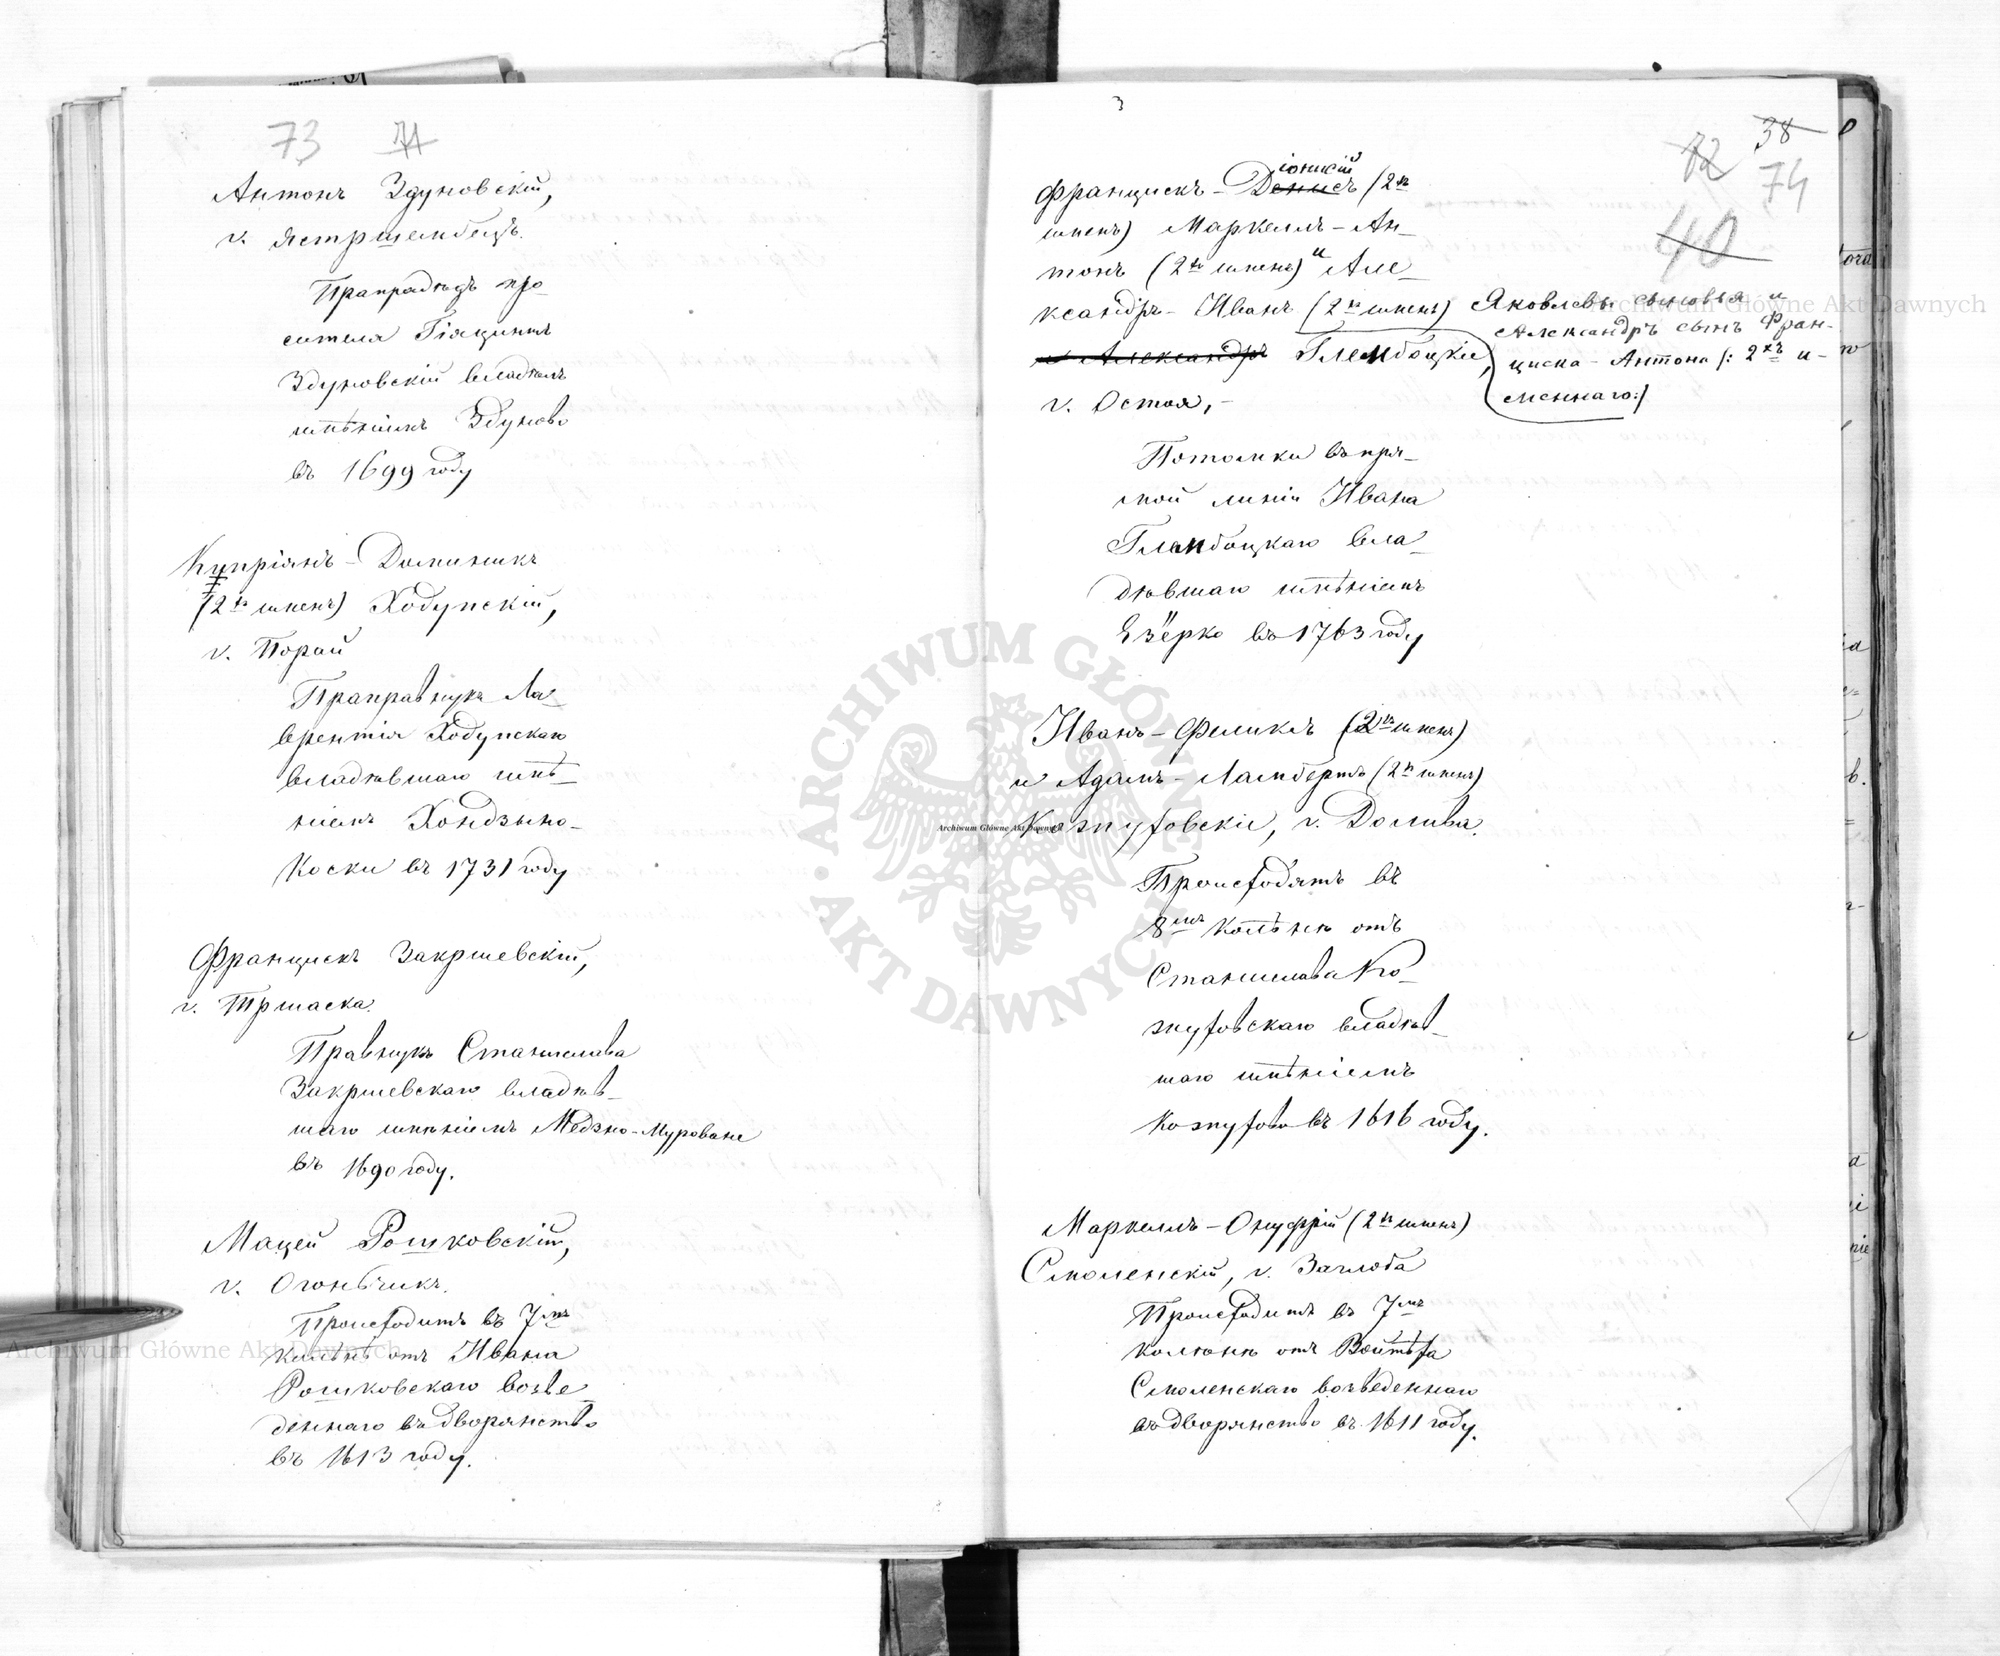 73 71
Антонъ Здуновскій,
г. Ястршембецъ.
Прапрадѣдъ про-
сителя Гіяцинтъ
Здуновскій владѣлъ
имѣніемъ Здуново
въ 1699 году
Кипріянъ-Доминикъ
(2хъ именъ) Ходупскій,
г. Порай
Праправнукъ Ла-
врентія Ходупскаго
владѣвшаго имѣ-
ніемъ Хондзыно-
Коски въ 1731 году
Францискъ Закршевскій,
г. Тршаска.
Правнукъ Станислава
Закршевскаго владѣв-
шаго имѣніемъ Медзно-Мурованe
въ 1690 году.
Мацей Рошковскій,
г. Огоньчикъ.
Происходитъ въ 7мъ
колѣнѣ отъ Ивана
Рошковскаго возве-
деннаго въ дворянство
въ 1613 году.
3
38
72 74
40
іонисій
Францискъ-Денисъ (2хъ
именъ) Маркеллъ-Ан-
тонъ (2хъ именъ) и Але-
ксандръ-Иванъ (2хъ именъ) Яковлевы сыновья и
Александръ сынъ Фран-
и Александръ Глембоцкіе,
циска-Антона (: 2хъ и-
г. Остоя,-
меннаго:)
Потомки въ пря-
мой линіи Ивана
Глембоцкаго вла-
дѣвшаго имѣніемъ
Езёрко въ 1763 году
Иванъ-Феликсъ (2хъ именъ)
и Адамъ-Ламбертъ (2хъ именъ)
Козпуховскіе, г. Долива.
Происходятъ въ
8мъ колѣнѣ отъ
Станислава Ко-
зпуховскаго владѣв-
шаго имѣніемъ
Козпухово въ 1616 году.
Маркеллъ-Онуфрій (2хъ именъ)
Смоленскій, г. Заглоба
Происходитъ въ 7мъ
колѣнѣ отъ Войтѣха
Смоленскаго возведеннаго
въ дворянство въ 1611 году.
Archiwum Główne Akt Dawnych
ARCHIWUM GŁÓWNE • AKT DAWNYCH
Archiwum Główne Akt Dawnych
Archiwum Główne Akt Dawnych